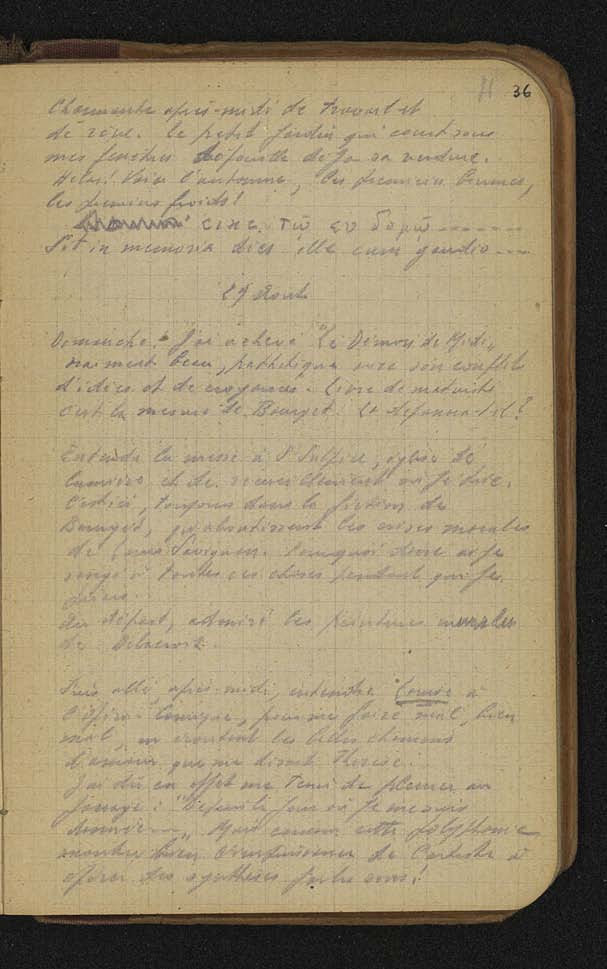 36
Charmante après-midi de travail et
de rêve. Le petit jardin qui court sous
mes fenêtres défeuille déjà sa verdure.
Hélas! Voici l'automne, les premières brumes,
les premiers froids!
τω εν δομω
Sit in memoria dies illa cum gaudio
29 Août
Dimanche. J'ai achevé "Le Démon de Midi"
vraiment beau, pathétique avec son conflit
d'idées et de croyances. Livre de maturité
c'est la mesure de Bourget. La
Entendu la messe à St Sulpice, église de
lumière et de recueillement où je
C'est ici, toujours dans la fiction de
Bourget, qu'aboutissent les crises morales
de Louis Savignan. Pourquoi donc ai-je
songé à toutes ces choses pendant que je
priais.
Au départ, admiré les peintures murales
de Delacroix.
Puis allé, après-midi, entendre Louise à
l'Opéra-Comique, pour me faire mal, bien
mal, en écoutant les belles chansons
d'amour que me disait Thérèse.
J'ai dû en effet me tenir de pleurer au
passage : "Depuis le jour où je me suis
donnée" Mais comme cette polyphonie
montre bien l'impuissance de l'artiste à
opérer des synthèses par les sons!